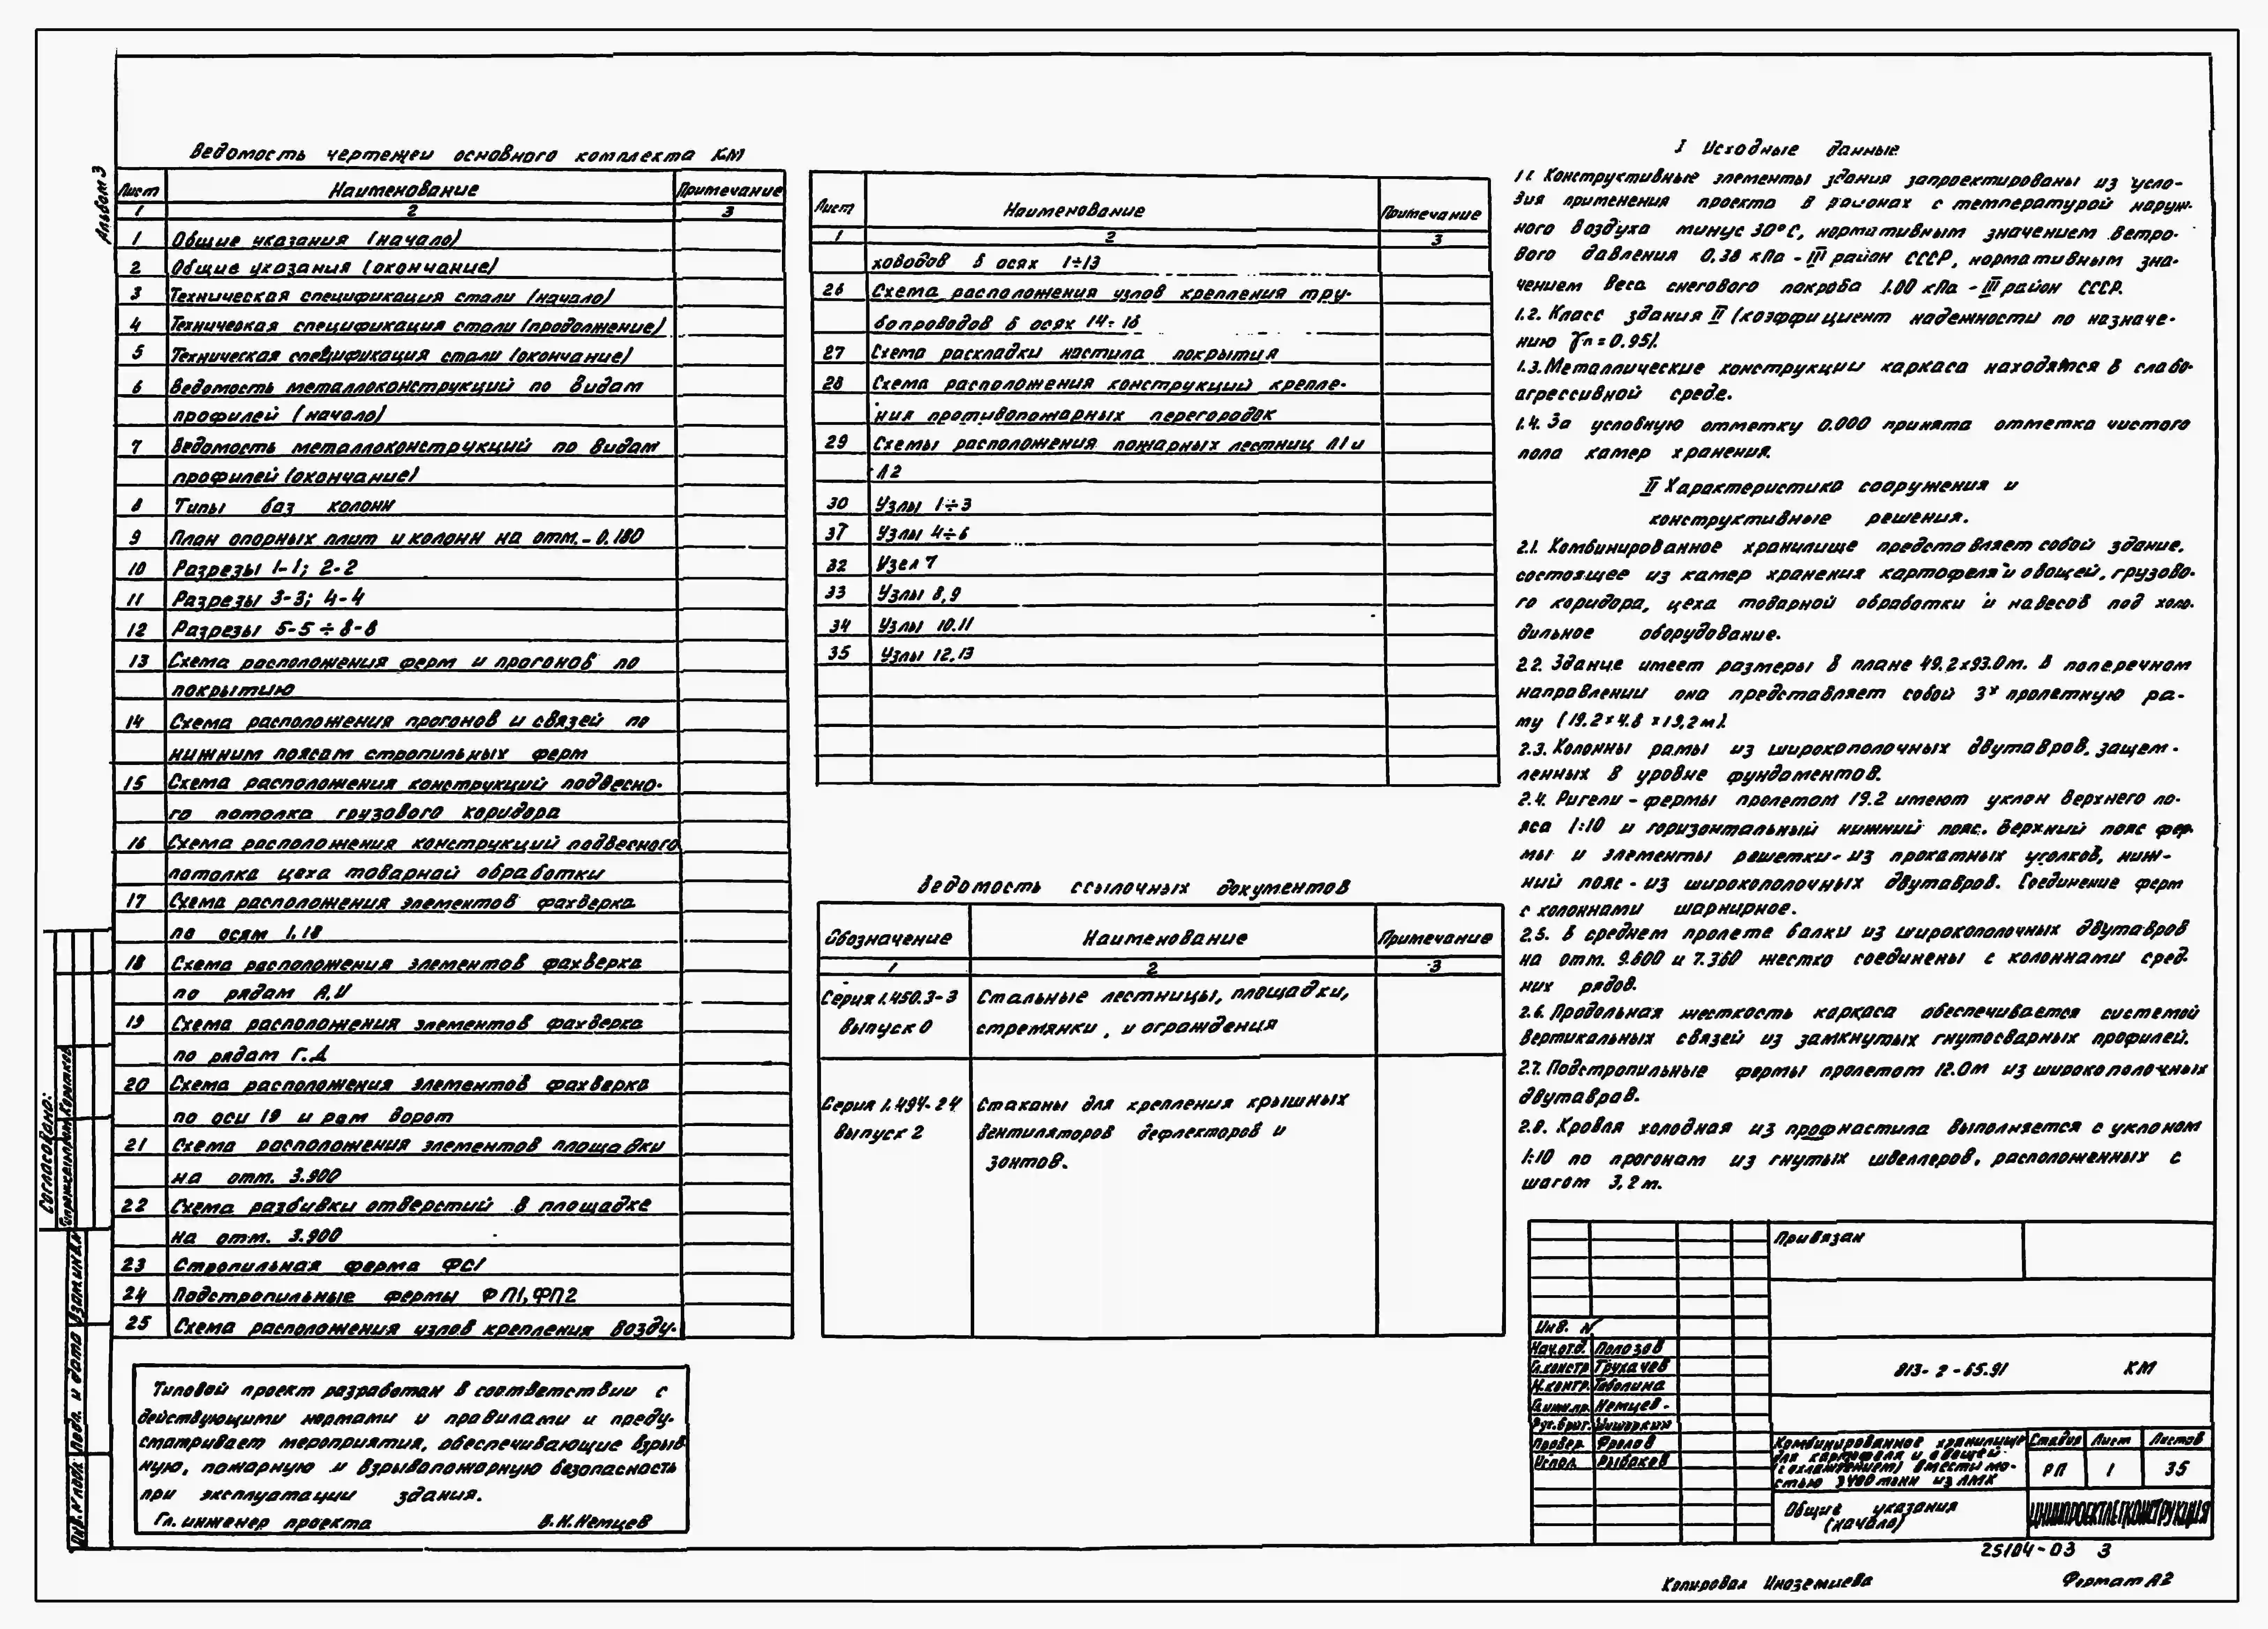 Альбом 3
Ведомость чертежей основного комплекта КМ
Лист Наименование Примечание
1 2 3
1 Общие указания (начало)
2 Общие указания (окончание)
3 Техническая спецификация стали (начало)
4 Техническая спецификация стали (продолжение)
5 Техническая спецификация стали (окончание)
6 Ведомость металлоконструкций по видам
профилей (начало)
7 Ведомость металлоконструкций по видам
профилей (окончание)
8 Типы баз колонн
9 План опорных плит и колонн на отм. -0.180
10 Разрезы 1-1; 2-2
11 Разрезы 3-3; 4-4
12 Разрезы 5-5÷8-8
13 Схема расположения ферм и прогонов по
покрытию
14 Схема расположения прогонов и связей по
нижним поясам стропильных ферм
15 Схема расположения конструкций подвесно-
го потолка грузового коридора
16 Схема расположения конструкций подвесного
потолка цеха товарной обработки
17 Схема расположения элементов фахверка
по осям 1.18
18 Схема расположения элементов фахверка
по рядам А,И
19 Схема расположения элементов фахверка
по рядам Г.Д
20 Схема расположения элементов фахверка
по оси 19 и рам ворот
21 Схема расположения элементов площадки
на отм. 3.900
22 Схема разбивки отверстий в площадке
на отм. 3.900
23 Стропильная ферма ФС1
24 Подстропильные фермы ФП1, ФП2
25 Схема расположения узлов крепления возду-
Типовой проект разработан в соответствии с
действующими нормами и правилами и преду-
сматривает мероприятия, обеспечивающие взрыв
ную, пожарную и взрывопожарную безопасность
при эксплуатации здания.
Гл. инженер проекта В.Н.Немцев
Лист Наименование Примечание
1 2 3
ховодов в осях 1÷13
26 Схема расположения узлов крепления тру-
бопроводов в осях 14÷18
27 Схема раскладки настила покрытия
28 Схема расположения конструкций крепле-
ния противопожарных перегородок
29 Схемы расположения пожарных лестниц Л1 и
Л2
30 Узлы 1÷3
31 Узлы 4÷6
32 Узел 7
33 Узлы 8,9
34 Узлы 10.11
35 Узлы 12.13
Ведомость ссылочных документов
Обозначение Наименование Примечание
1 2 3
Серия 1.450.3-3 Стальные лестницы, площадки,
выпуск 0 стремянки, и ограждения
Серия 1.494-24 Стаканы для крепления крышных
выпуск 2 вентиляторов дефлекторов и
зонтов.
I Исходные данные
1.1. Конструктивные элементы здания запроектированы из усло-
вия применения проекта в районах с температурой наруж-
ного воздуха минус 30°С, нормативным значением ветро-
вого давления 0.38 кПа - III район СССР, нормативным зна-
чением веса снегового покрова 1.00 кПа - III район СССР.
1.2. Класс здания II (коэффициент надежности по назначе-
нию γn = 0.95).
1.3. Металлические конструкции каркаса находятся в слабо-
агрессивной среде.
1.4. За условную отметку 0.000 принята отметка чистого
пола камер хранения.
II Характеристика сооружения и
конструктивные решения.
2.1. Комбинированное хранилище представляет собой здание,
состоящее из камер хранения картофеля и овощей, грузово-
го коридора, цеха товарной обработки и навесов под холо-
дильное оборудование.
2.2. Здание имеет размеры в плане 49.2х93.0м. В поперечном
направлении она представляет собой 3х пролетную ра-
му (19.2×4.8×19,2м).
2.3. Колонны рамы из широкополочных двутавров, защем-
ленных в уровне фундаментов.
2.4. Ригели - фермы пролетом 19.2 имеют уклон верхнего по-
яса 1:10 и горизонтальный нижний пояс. Верхний пояс фер-
мы и элементы решетки - из прокатных уголков, ниж-
ний пояс - из широкополочных двутавров. Соединение ферм
с колоннами шарнирное.
2.5. В среднем пролете балки из широкополочных двутавров
на отм. 9.600 и 7.360 жестко соединены с колоннами сред-
них рядов.
2.6. Продольная жесткость каркаса обеспечивается системой
вертикальных связей из замкнутых гнутосварных профилей.
2.7. Подстропильные фермы пролетом 12.0м из широкополочных
двутавров.
2.8. Кровля холодная из профнастила выполняется с уклоном
1:10 по прогонам из гнутых швеллеров, расположенных с
шагом 3,2 м.
Привязан
Инв. N
Нач.отд. Полозов
Гл.констр Трукачев
Н.контр. Таболина
Гл.инж.пр. Немцев
Рук.бриг. Шишаркин
Провер. Фролов
Испол. Рыбаков
813-2-65.91 КМ
Комбинированное хранилище
для картофеля и овощей
(с охлаждением) вместимо-
стью 3400 тонн из ЛМК
Стадия Лист Листов
РП 1 35
Общие указания
(начало)
ЦНИИПРОЕКТЛЕГКОНСТРУКЦИЯ
25104-03 3
Копировал Иноземцева Формат А2
Согласовано:
Взам.инв.N
Подп. и дата
Инв. N подл.